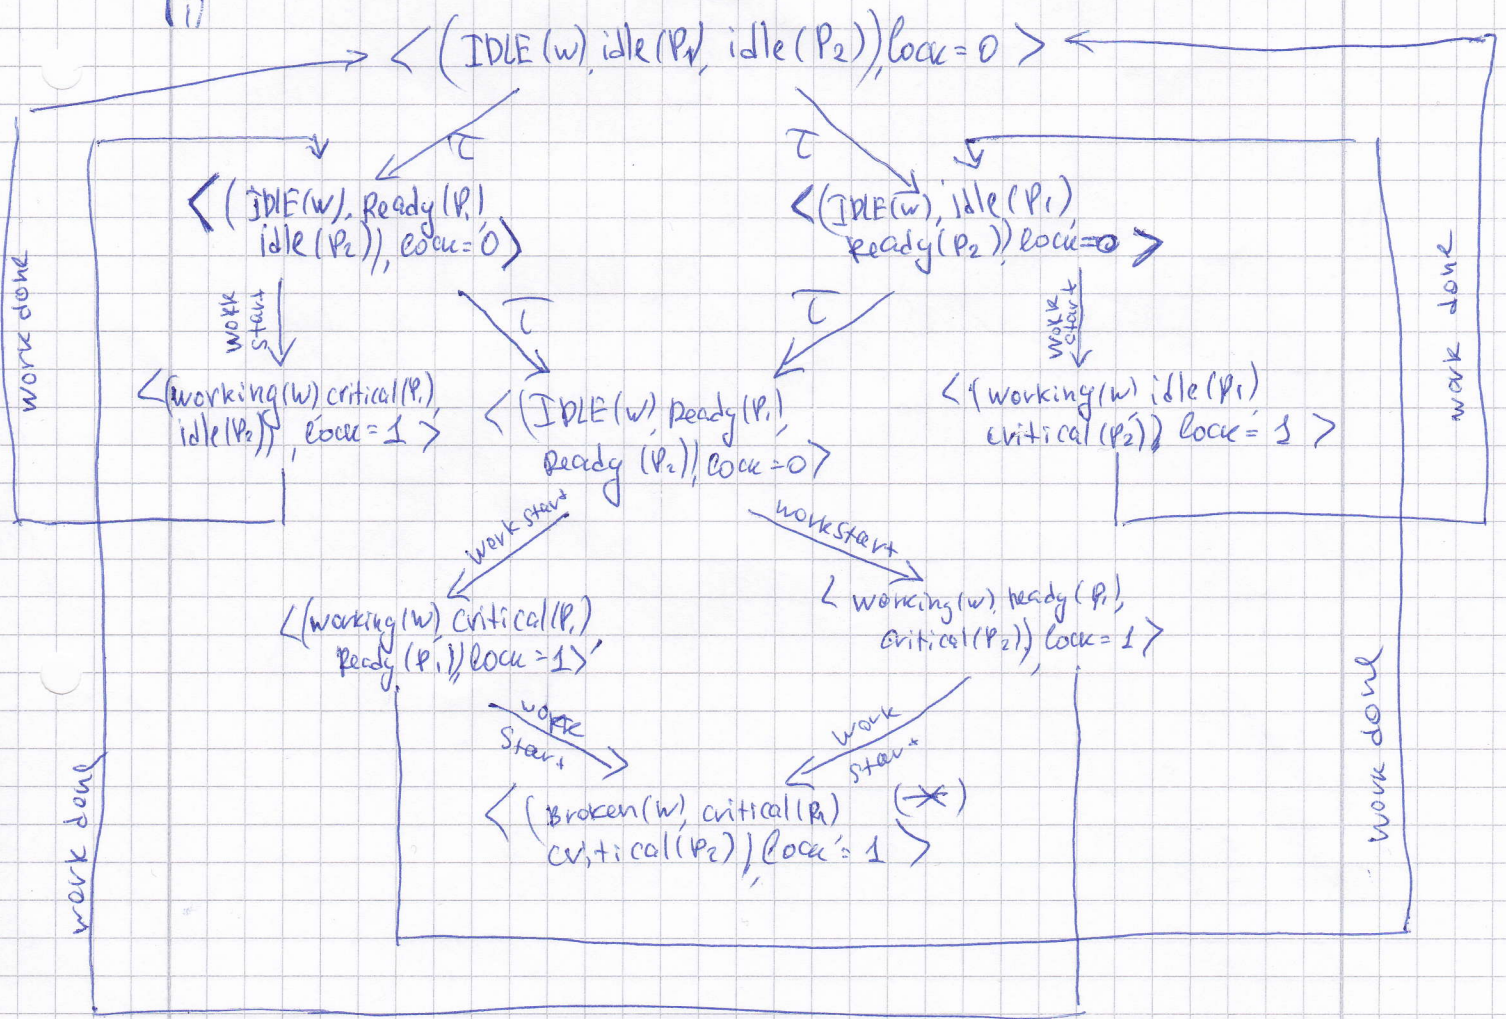 1)
< (IDLE(W), idle(P1), idle(P2)), lock=0 >
τ
τ
< (IDLE(W), Ready(P1),
idle(P2)), lock=0 >
< (IDLE(W), idle(P1),
Ready(P2)) lock=0 >
work done
work start
τ
τ
work start
work done
< (working(W) critical(P1),
idle(P2)), lock=1 >
< (IDLE(W), Ready(P1),
Ready (P2)), lock=0 >
< (working(W) idle(P1)
critical(P2)) lock=1 >
work start
work start
< (working(W) critical(P1),
Ready(P1)), lock=1 >
< working(W), ready(P1),
critical(P2)), lock=1 >
work done
work start
work start
work done
< (Broken(W), critical(P1) (*)
critical(P2)), lock=1 >